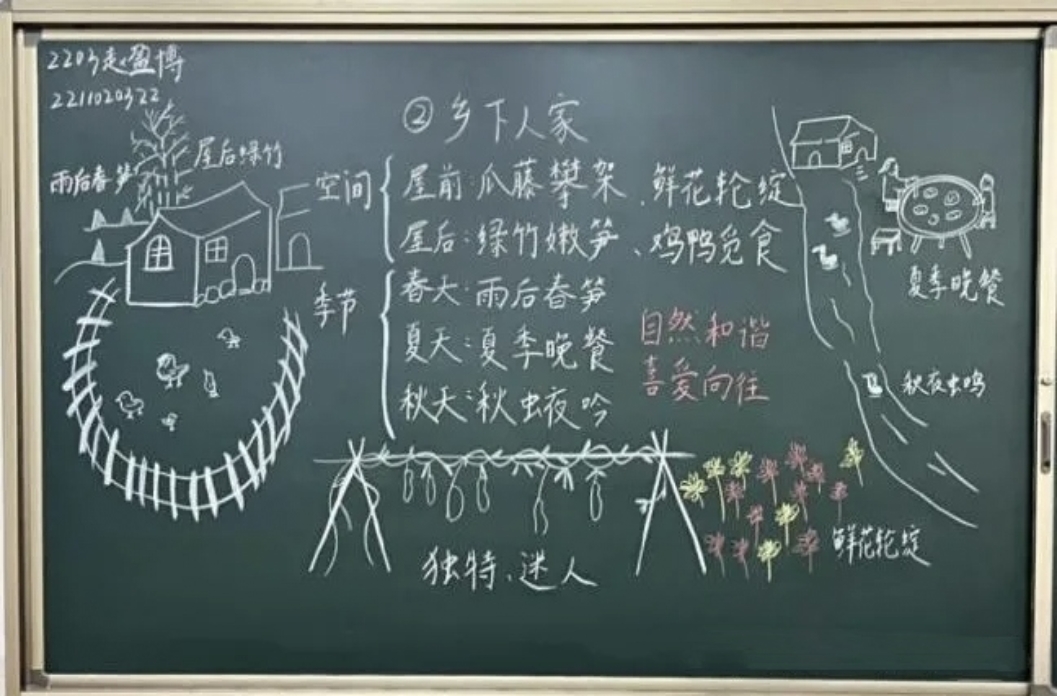 2203赵盈博
2211020322
②乡下人家
屋后绿竹
雨后春笋
空间
屋前:瓜藤攀架、鲜花轮绽
屋后:绿竹嫩笋、鸡鸭觅食
季节
春天:雨后春笋
夏天:夏季晚餐
秋天:秋虫夜吟
自然和谐
喜爱向往
夏季晚餐
秋夜虫鸣
鲜花轮绽
独特、迷人